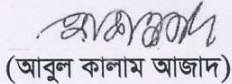 (আবুল কালাম আজাদ)